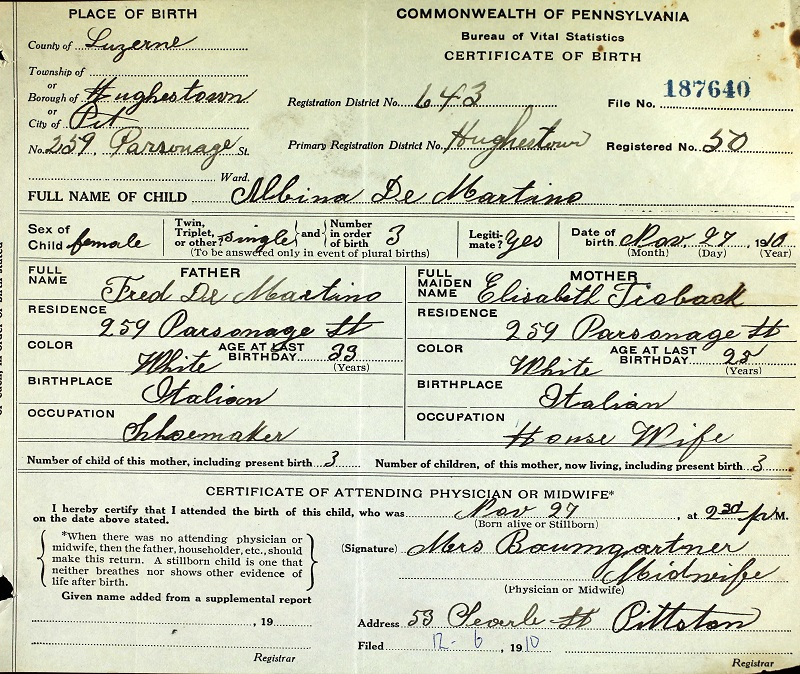 PLACE OF BIRTH
COMMONWEALTH OF PENNSYLVANIA
Bureau of Vital Statistics
CERTIFICATE OF BIRTH
County of Luzerne
Township of
or
Borough of Hughestown
or
City of Pit
No. 259. Parsonage St.
Ward.
Registration District No. 643
File No. 187640
Primary Registration District No. Hughestown
Registered No. 50
FULL NAME OF CHILD Albina De Martino
Sex of Child female
Twin, Triplet, or other? single and Number in order of birth 3
(To be answered only in event of plural births)
Legiti-mate? yes
Date of birth Nov 27, 1910
(Month) (Day) (Year)
FATHER
FULL NAME Fred De Martino
RESIDENCE 259 Parsonage St
COLOR White AGE AT LAST BIRTHDAY 33 (Years)
BIRTHPLACE Italian
OCCUPATION Shoemaker
MOTHER
FULL MAIDEN NAME Elisabeth Traback
RESIDENCE 259 Parsonage St
COLOR White AGE AT LAST BIRTHDAY (Years)
BIRTHPLACE Italian
OCCUPATION House Wife
Number of child of this mother, including present birth 3
Number of children, of this mother, now living, including present birth 3
CERTIFICATE OF ATTENDING PHYSICIAN OR MIDWIFE*
I hereby certify that I attended the birth of this child, who was Nov 27, at M.
on the date above stated. (Born alive or Stillborn)
*When there was no attending physician or
midwife, then the father, householder, etc., should
make this return. A stillborn child is one that
neither breathes nor shows other evidence of
life after birth.
(Signature) Mrs Baumgartner
Midwife
(Physician or Midwife)
Given name added from a supplemental report
, 19
Registrar
Address 53 Searle St Pittston
Filed 12-6, 1910
Registrar